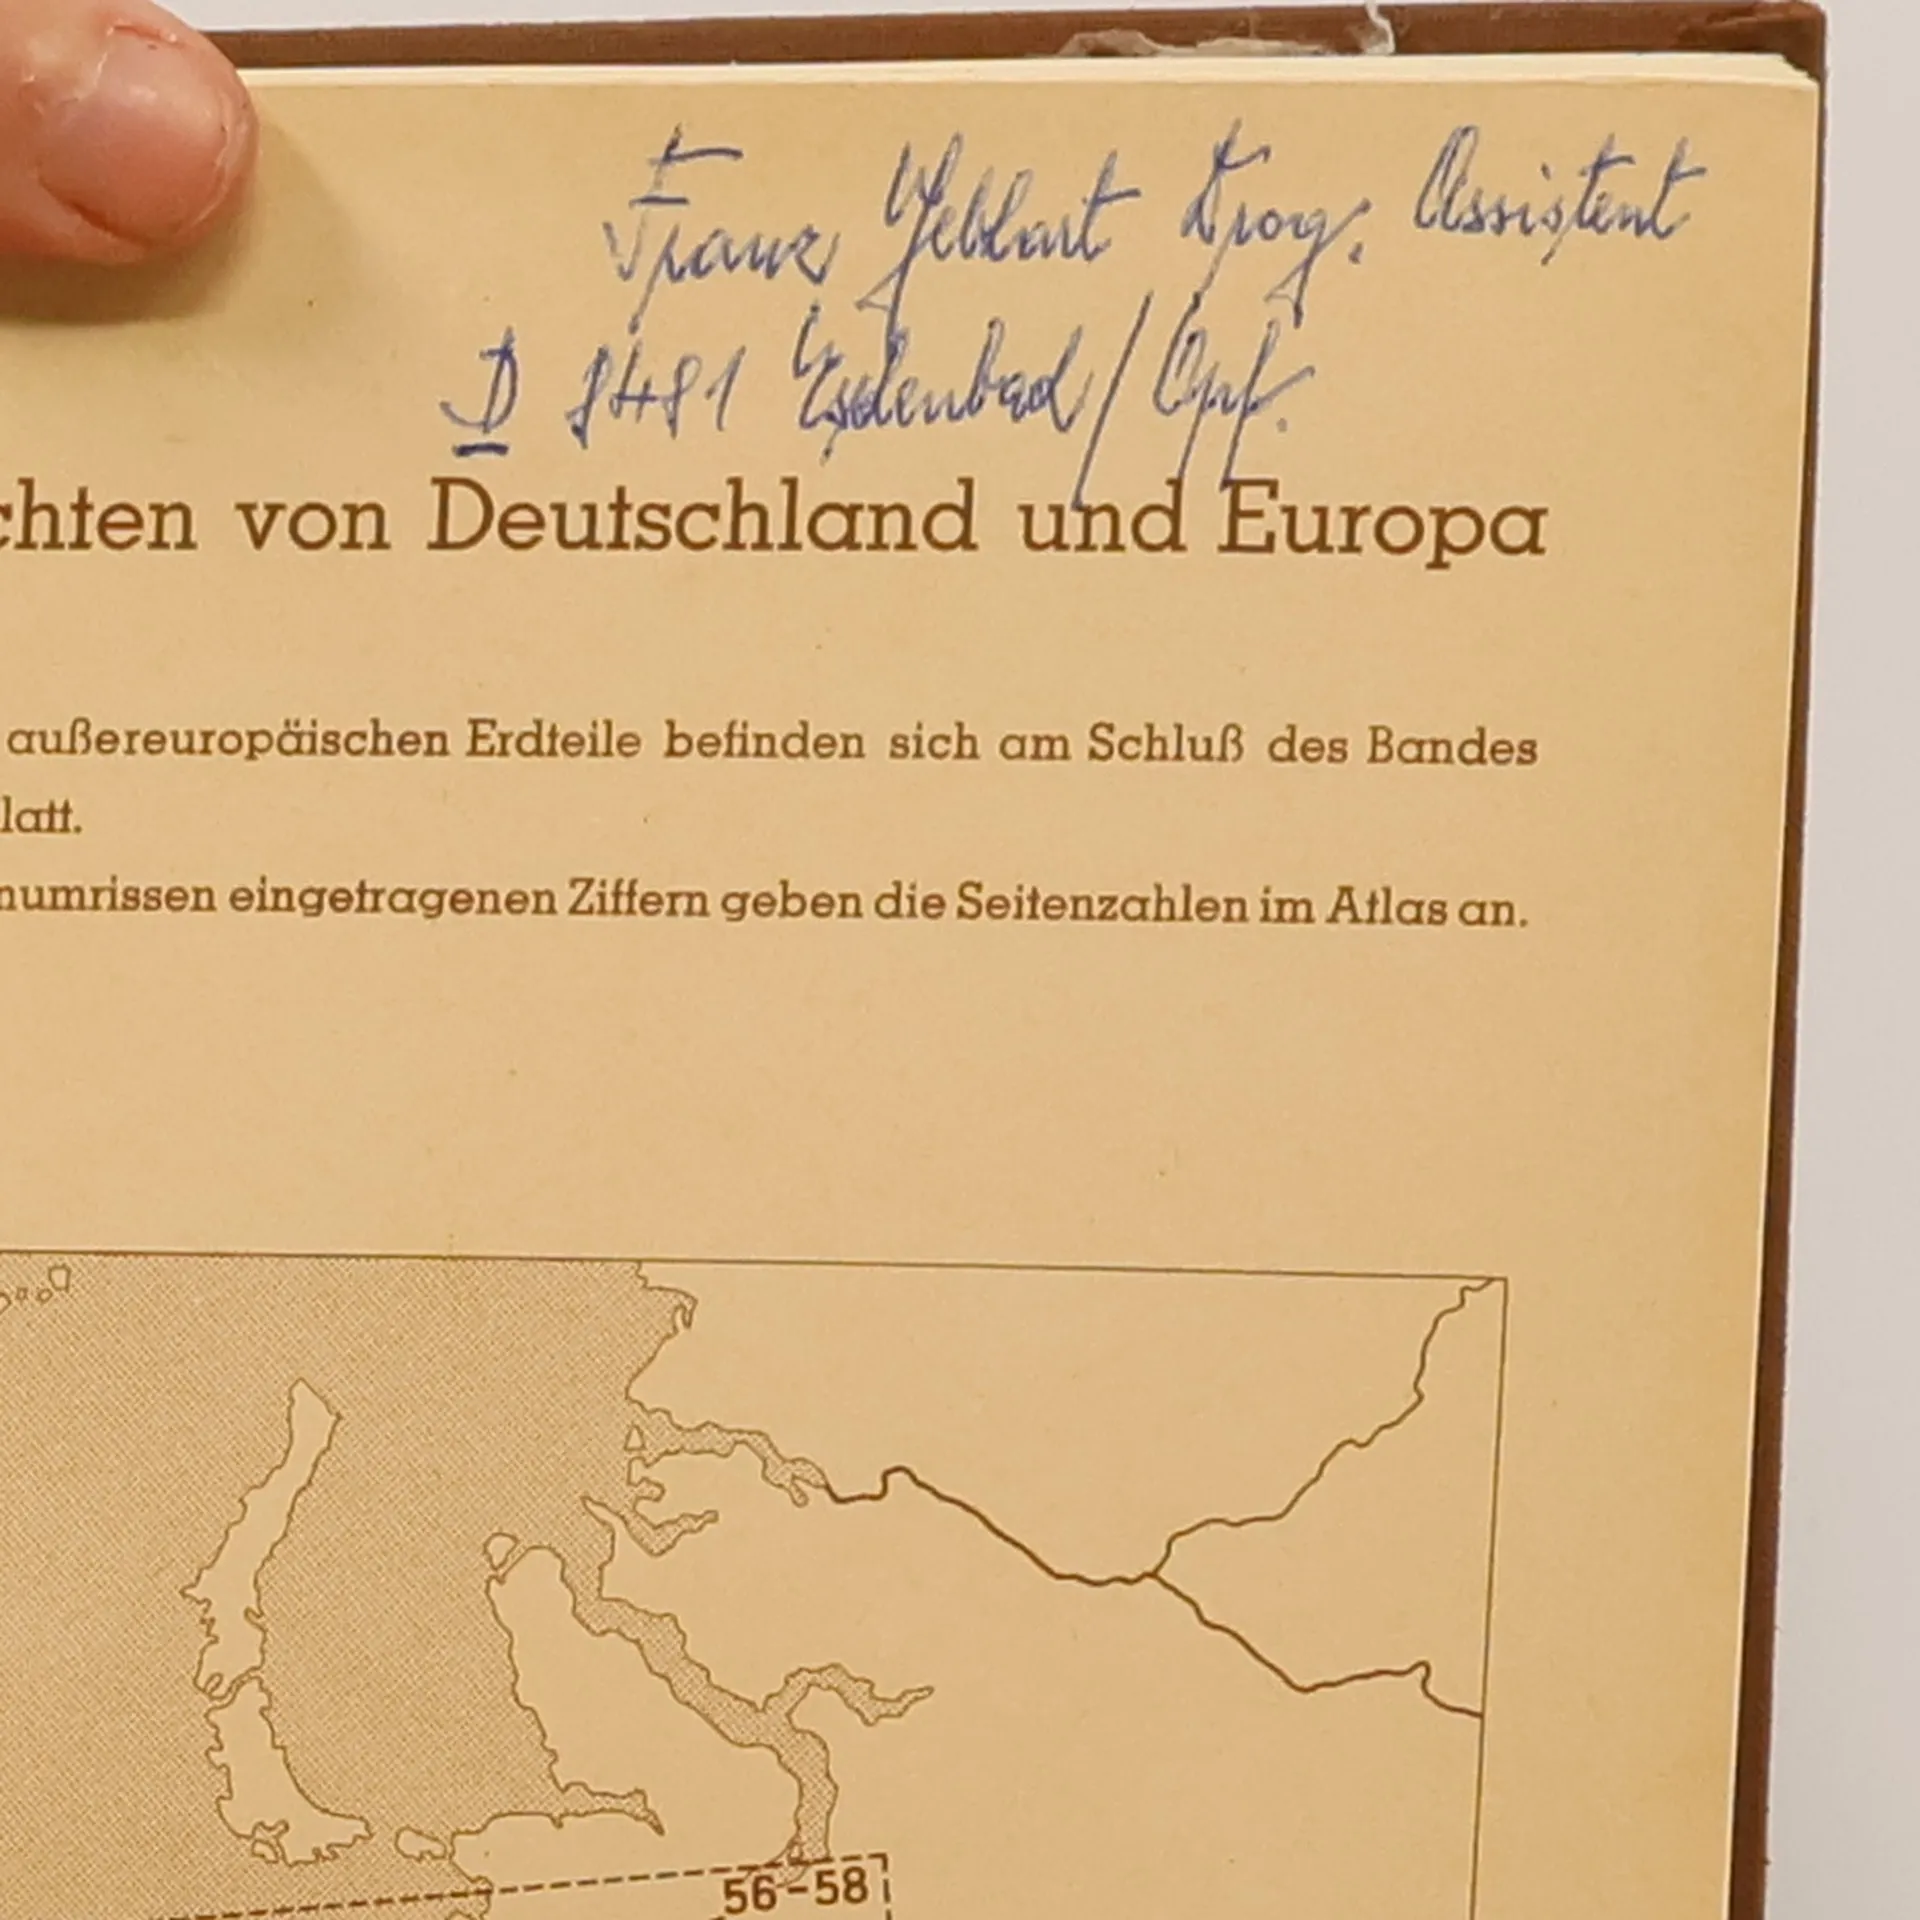 Franz Gebhart Drog. Assistent
D 8481 Eslenbad/Opf.
chten von Deutschland und Europa
außereuropäischen Erdteile befinden sich am Schluß des Bandes
latt.
numrissen eingetragenen Ziffern geben die Seitenzahlen im Atlas an.
56-58